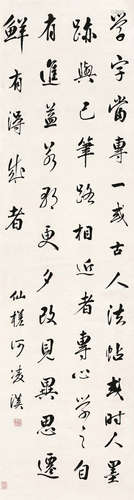 学字当專一或古人法帖或时人墨
跡與己筆路相近者專心学之自
有進益若朝更夕改見異思遷
鮮有得成者
仙槎何凌漢